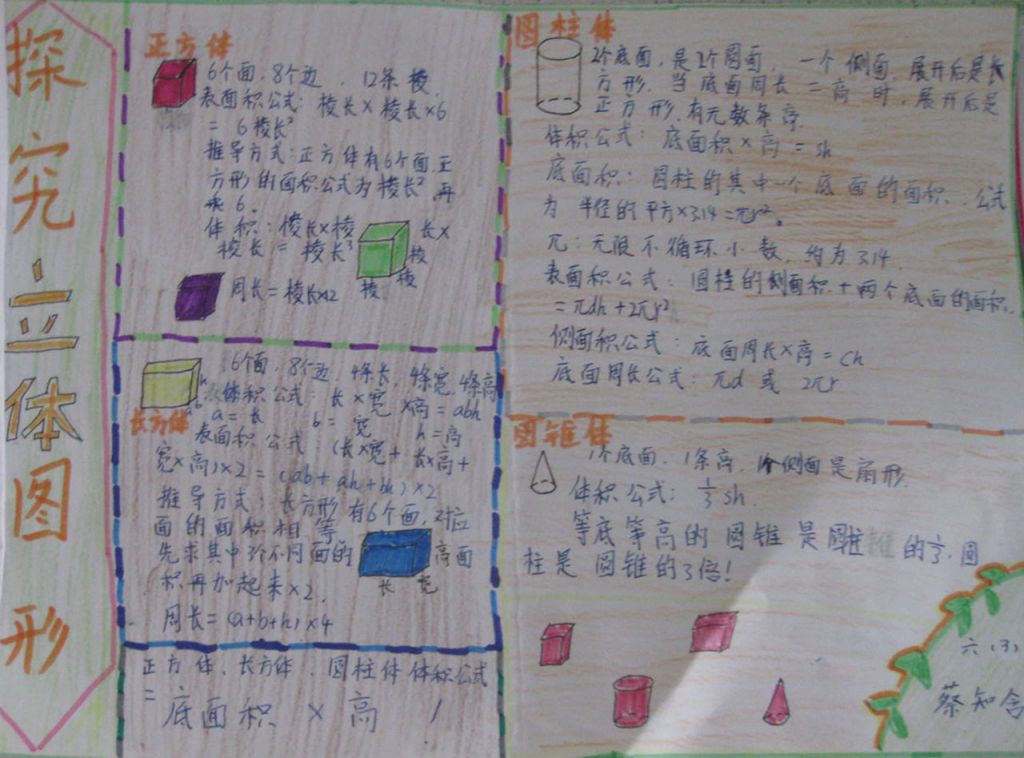 探究立体图形
正方体
6个面,8个边,12条棱
表面积公式:棱长×棱长×6
=6棱长²
推导方式:正方体有6个面,正
方形的面积公式为棱长²,再
乘6。
体积:棱长×棱长×
棱长=棱长³
棱
棱
棱
周长=棱长×2
长方体
6个面,8个边,4条长,4条宽,4条高
体积公式:长×宽×高=abh
a=长 b=宽 h=高
表面积公式 (长×宽+长×高+
宽×高)×2=(ab+ah+bh)×2
推导方式:长方形有6个面,2对应
面的面积相等
先求其中3个不同面的面
积再加起来×2.
高
长 宽
周长=(a+b+h)×4
正方体、长方体、圆柱体体积公式
=底面积×高!
圆柱体
2个底面,是2个圆面,一个侧面,展开后是长
方形,当底面周长=高时,展开后是
正方形,有无数条高
体积公式:底面积×高=sh
底面积:圆柱的其中一个底面的面积.公式
为 半径的平方×3.14=πr²。
π:无限不循环小数,约为3.14.
表面积公式:圆柱的侧面积+两个底面的面积.
=πdh+2πr²
侧面积公式:底面周长×高=ch
底面周长公式:πd 或 2πr
圆锥体
1个底面,1条高,1个侧面是扇形.
体积公式:⅓sh
等底等高的圆锥是圆柱的⅓,圆
柱是圆锥的3倍!
六(3)
蔡知含